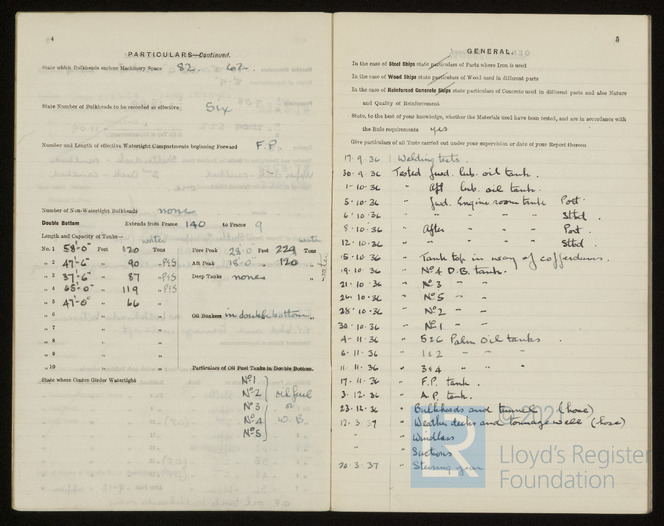 4
PARTICULARS—Continued.
State which Bulkheads enclose Machinery Space 82. 62.
State Number of Bulkheads to be recorded as effective Six
Number and Length of effective Watertight Compartments beginning Forward F.P.
Number of Non-Watertight Bulkheads none
Double Bottom Extends from Frame 140 to Frame 9
Length and Capacity of Tanks— water water
No. 1 58'-0" Feet 120 Tons Fore Peak 28'-0" Feet 229 Tons
„ 2 47'-6" „ 90 „ P&S Aft Peak 18'-0" „ 120 „
„ 3 37'-6" „ 87 „ P&S Deep Tanks none
„ 4 65'-0" „ 119 „ P&S
„ 5 47'-0" „ 66 „
„ 6 Oil Bunkers in double bottom
„ 7
„ 8
„ 9
„ 10 Particulars of Oil Fuel Tanks in Double Bottom.
State where Centre Girder Watertight
No 1
No 2 oil fuel
No 3 or
No 4 W. B.
No 5
5
GENERAL.
In the case of Steel Ships state particulars of Parts where Iron is used
In the case of Wood Ships state particulars of Wood used in different parts
In the case of Reinforced Concrete Ships state particulars of Concrete used in different parts and also Nature
and Quality of Reinforcement
State, to the best of your knowledge, whether the Materials used have been tested, and are in accordance with
the Rule requirements yes
Give particulars of all Tests carried out under your supervision or date of your Report thereon
17.9.36 Welding tests.
30.9.36 Tested fwd. lub. oil tank.
1-10.36 „ Aft lub. oil tank.
5.10.36 „ fwd. Engine room tank Port.
6.10.36 „ „ „ „ Stbd.
8.10.36 „ After „ „ Port.
12.10.36 „ „ „ „ Stbd
15.10.36 „ Tank top in way of cofferdams.
19.10.36 „ No 4 D.B. tank.
21.10.36 „ No 3 „ „
26.10.36 „ No 5 „ „
28.10.36 „ No 2 „ „
30.10.36 „ No 1 „ „
4-11.36 „ 5 & 6 Palm Oil tanks.
6.11.36 „ 1 & 2 „ „ „
11.11.36 „ 3 & 4 „ „ „
17.11.36 „ F.P. tank.
3.12.36 „ A.P. tank.
23.12.36 „ Bulkheads and tunnel (hose)
12.3.37 „ Weather decks and tonnage well (hose)
„ „ Windlass
„ „ Suctions
20.3.37 „ Steering gear
Lloyd's Register
Foundation